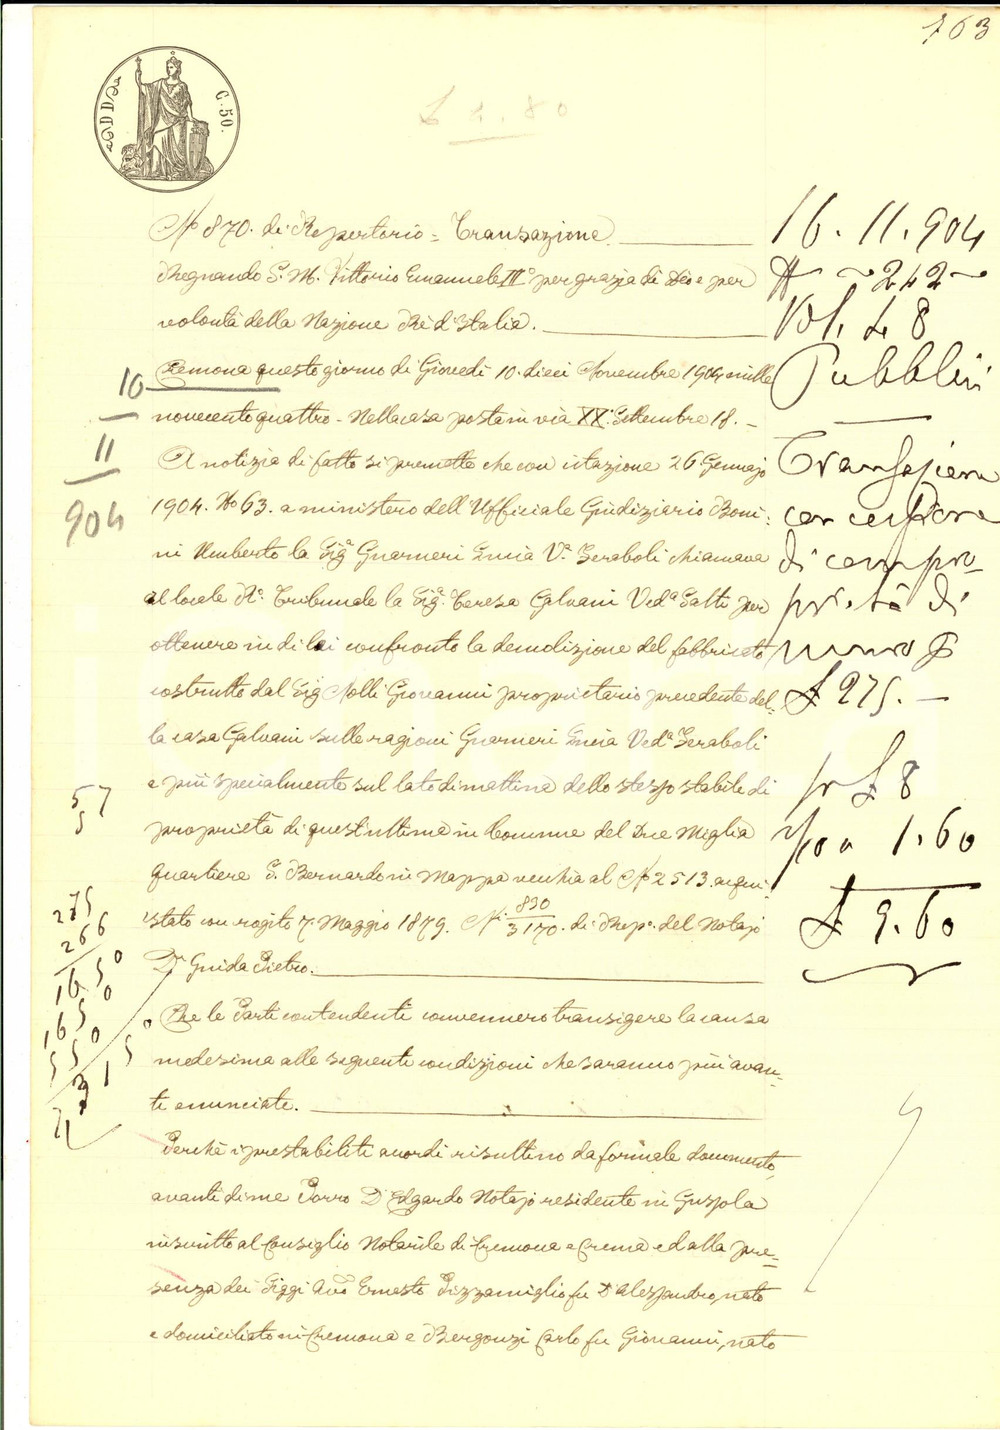 163
C. 50.
£ 4.80
No 870. di Repertorio = Transazione.
Regnando S. M. Vittorio Emanuele III° per grazia di Dio e per
volontà della Nazione Rè d'Italia.
Cremona questo giorno di Giovedì 10. dieci Novembre 1904 mille
novecento quattro - Nella casa posta in via XX. Settembre 18. -
A notizia di fatto si premette che con citazione 26 Gennajo
1904. No 63. a ministero dell'Ufficiale Giudiziario Boni=
ni Umberto la Sigª Guarneri Lucia Vª. Zeraboli chiamava
al locale Rº. Tribunale la Sigª. Teresa Galvani Vedª Galli per
ottenere in di lei confronto la demolizione del fabbricato
costrutto dal Sig Nolli Giovanni proprietario precedente del=
la casa Galvani sulle ragioni Guarneri Lucia Vedª Zeraboli
e più specialmente sul lato di mattina dello stesso stabile di
proprietà di quest'ultima in Comune del Due Miglia
Quartiere S. Bernardo in Mappa vecchia al No 2513. acqui=
stato con rogito 7. Maggio 1879. N. 830/3170. di Repº. del Notajo
Dr Guida Pietro.
Che le Parti contendenti convennero transigere la causa
medesima alle seguenti condizioni che saranno più avan=
ti enunciate.
Perchè i prestabiliti accordi risultino da formale documento,
avanti di me Porro Dr Edgardo Notajo residente in Gussola
inscritto al Consiglio Notarile di Cremona e Crema ed alla pre=
senza dei Siggi Avvº Ernesto Pizzamiglio fu Dr Alessandro, nato
e domiciliato in Cremona e Bergonzi Carlo fu Giovanni, nato
16. 11. 904
# ~ 242 ~
Vol. 48
Pubblici
Transazione
con cessione
di compro-
prietà di
muro p
£ 275. -
pr £ 8
1.60
£ 9.60
10
11
904
57
5
275
266
1650
1650
550